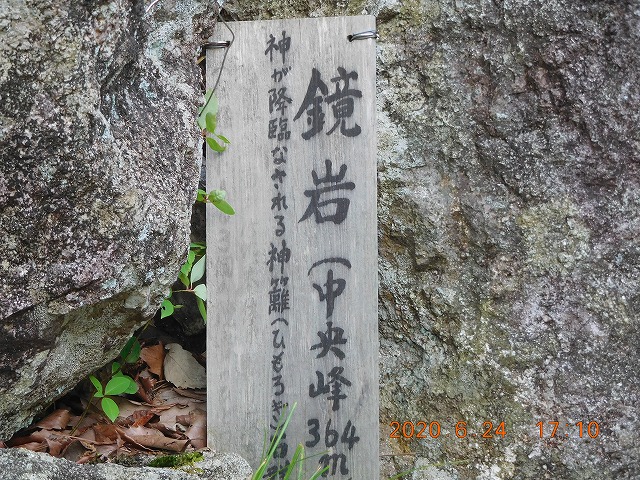 鏡岩(中央峰364m
神が降臨なされる神籬(ひもろぎ)
2020 6 24 17 10